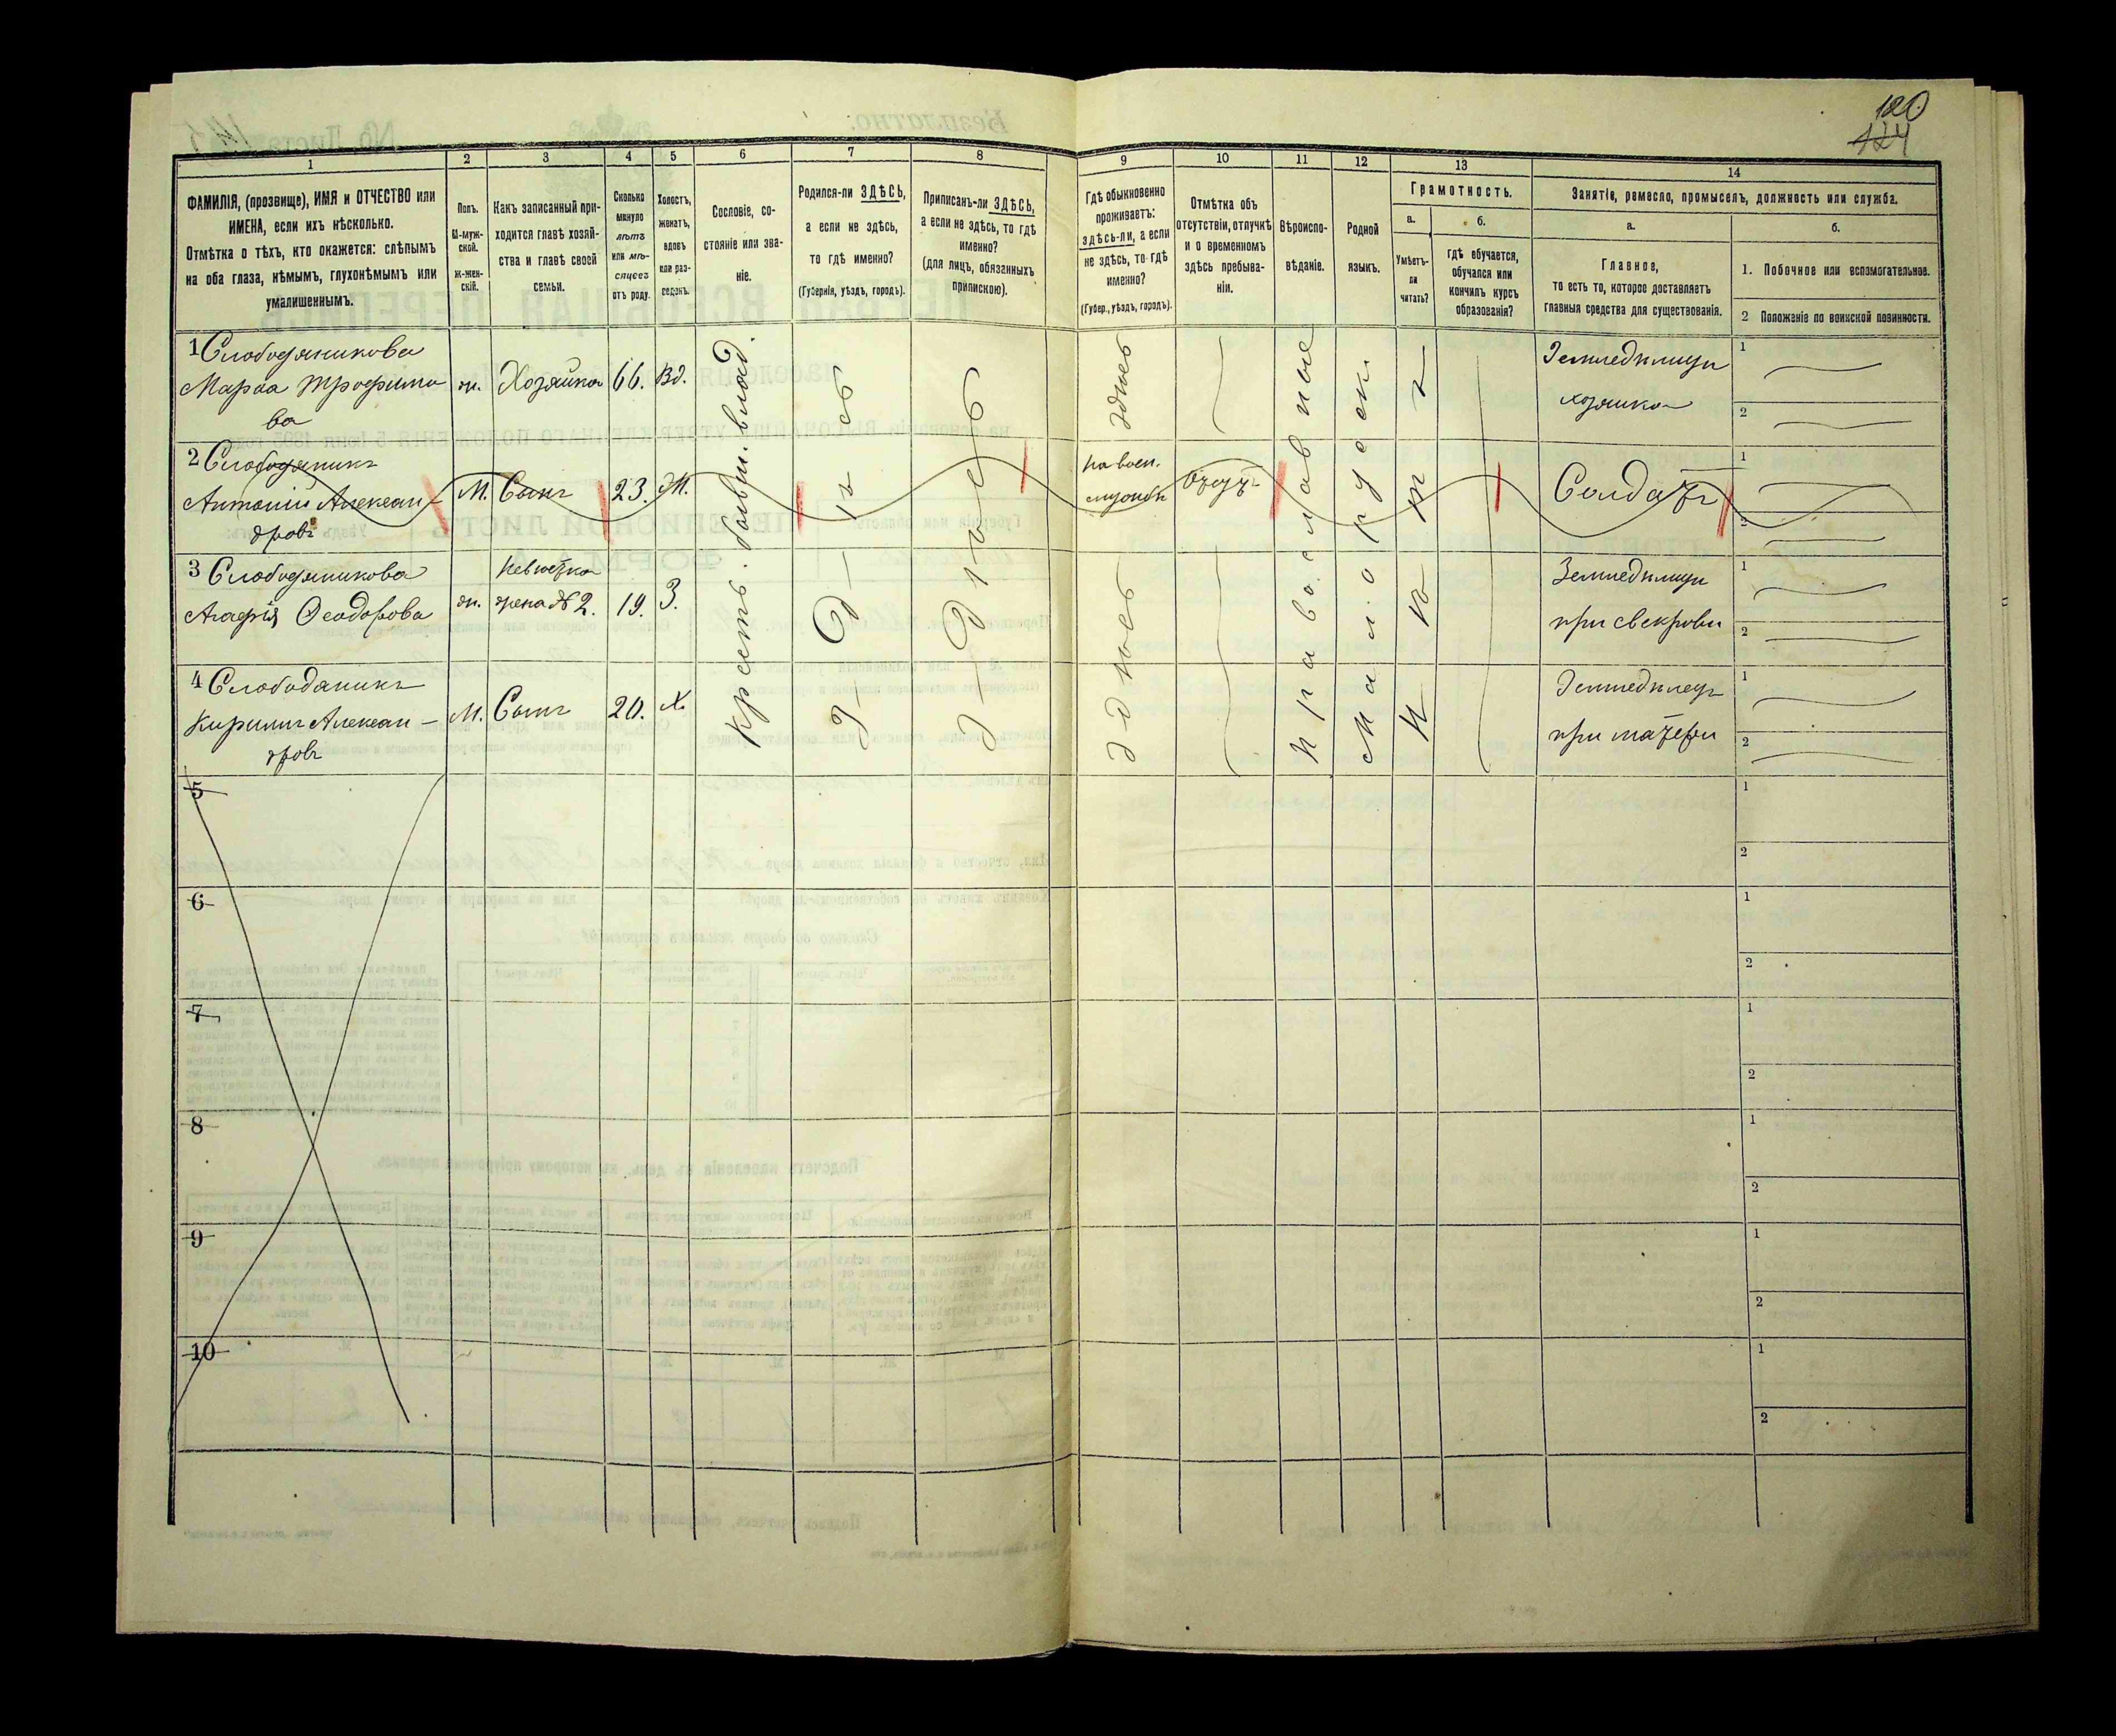 120
124
1
2
3
4
5
6
7
8
9
10
11
12
13
14
ФАМИЛІЯ, (прозвище), ИМЯ и ОТЧЕСТВО или
ИМЕНА, если ихъ нѣсколько.
Отмѣтка о тѣхъ, кто окажется: слѣпымъ
на оба глаза, нѣмымъ, глухонѣмымъ или
умалишеннымъ.
Полъ.
М-муж-
ской.
Ж-жен-
скій.
Какъ записанный при-
ходится главѣ хозяй-
ства и главѣ своей
семьи.
Сколько
минуло
лѣтъ
или мѣ-
сяцевъ
отъ роду.
Холостъ,
женатъ,
вдовъ
или раз-
веденъ.
Сословіе, со-
стояніе или зва-
ніе.
Родился-ли ЗДѢСЬ,
а если не здѣсь,
то гдѣ именно?
(Губернія, уѣздъ, городъ).
Приписанъ-ли ЗДѢСЬ,
а если не здѣсь, то гдѣ
именно?
(для лицъ, обязанныхъ
припискою).
Гдѣ обыкновенно
проживаетъ:
здѣсь-ли, а если
не здѣсь, то гдѣ
именно?
(Губер., уѣздъ, городъ).
Отмѣтка объ
отсутствіи, отлучкѣ
и о временномъ
здѣсь пребыва-
ніи.
Вѣроиспо-
вѣданіе.
Родной
языкъ.
Грамотность.
а.
б.
Умѣетъ-
ли
читать?
гдѣ обучается,
обучался или
кончилъ курсъ
образованія?
Занятіе, ремесло, промыселъ, должность или служба.
а.
б.
Главное,
то есть то, которое доставляетъ
главныя средства для существованія.
1. Побочное или вспомогательное.
2 Положеніе по воинской повинности.
1 Слободяникова
Марѳа Трофимо
ва
ж.
Хозяйка
66.
Вд.
Земледѣлица
хозяйка
1
2
2 Слободяникъ
Антоній Алексан-
дровъ
М.
Сынъ
23.
Ж.
на воен.
службѣ
отсут-
Солдатъ
1
2
3 Слободяникова
Агафія Ѳеодорова
ж.
Невѣстка
жена №2.
19.
З.
Земледѣлица
при свекрови
1
2
4 Слободяникъ
Кирилъ Алексан-
дровъ
М.
Сынъ
20.
Х.
Земледѣлецъ
при матери
1
2
крестъ. бывш. влад.
Здѣсь
Здѣсь
здѣсь
здѣсь
православные
малорусск.
5
1
2
6
1
2
7
1
2
8
1
2
9
1
2
10
1
2